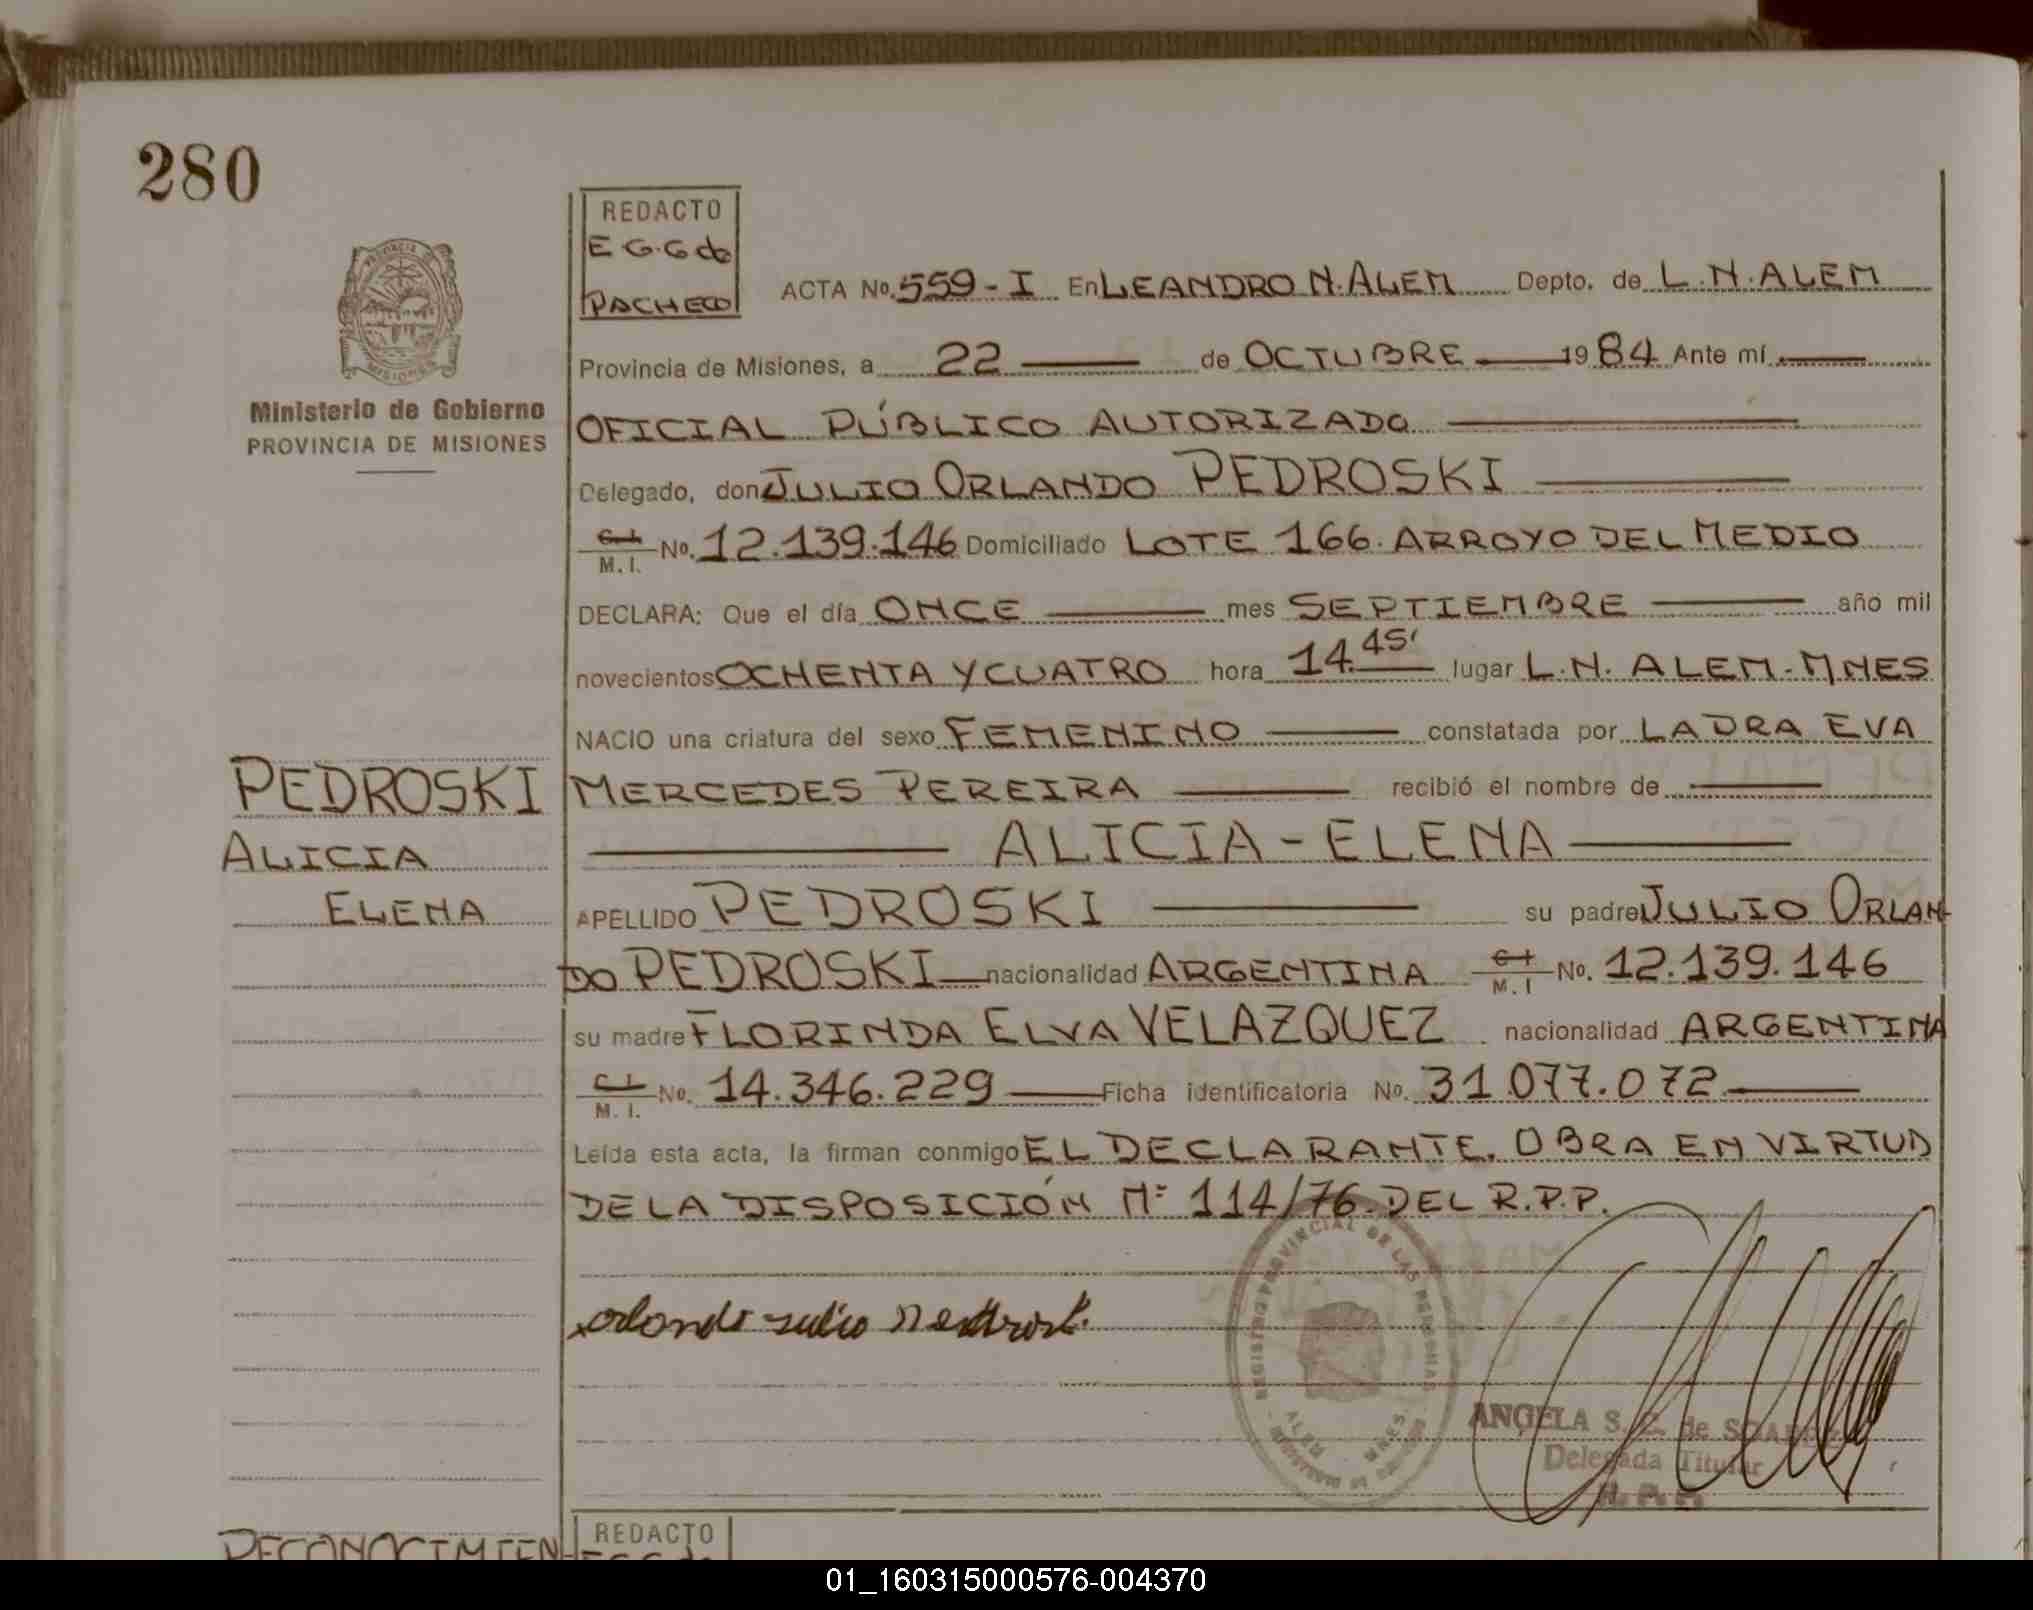 280
REDACTO
E G.G de
PACHECO
ACTA No. 559 - I En LEANDRO N. ALEM Depto. de L. N. ALEM
Provincia de Misiones, a 22 de OCTUBRE 1984 Ante mí
Ministerio de Gobierno
PROVINCIA DE MISIONES
OFICIAL PÚBLICO AUTORIZADO
Delegado, don JULIO ORLANDO PEDROSKI
C.I. M.I. No. 12.139.146 Domiciliado LOTE 166. ARROYO DEL MEDIO
DECLARA: Que el día ONCE mes SEPTIEMBRE año mil
novecientos OCHENTA Y CUATRO hora 14.45' lugar L.N. ALEM-MNES
NACIO una criatura del sexo FEMENINO constatada por LADRA EVA
MERCEDES PEREIRA recibió el nombre de
ALICIA - ELENA
PEDROSKI
ALICIA
ELENA
APELLIDO PEDROSKI su padre JULIO ORLAN-
DO PEDROSKI nacionalidad ARGENTINA C.I. M.I No. 12.139.146
su madre FLORINDA ELVA VELAZQUEZ nacionalidad ARGENTINA
C.I. M.I. No. 14.346.229 Ficha identificatoria No. 31.077.072
Leída esta acta, la firman conmigo EL DECLARANTE. OBRA EN VIRTUD
DE LA DISPOSICIÓN Nº 114/76 DEL R.P.P.
REGISTRO PROVINCIAL DE LAS PERSONAS
ALEM - MNES.
orlando Julio Pedroski
ANGELA S. C. de SOAREZ
Delegada Titular
R.P.P.
RECONOCIMIEN-
REDACTO
01_160315000576-004370